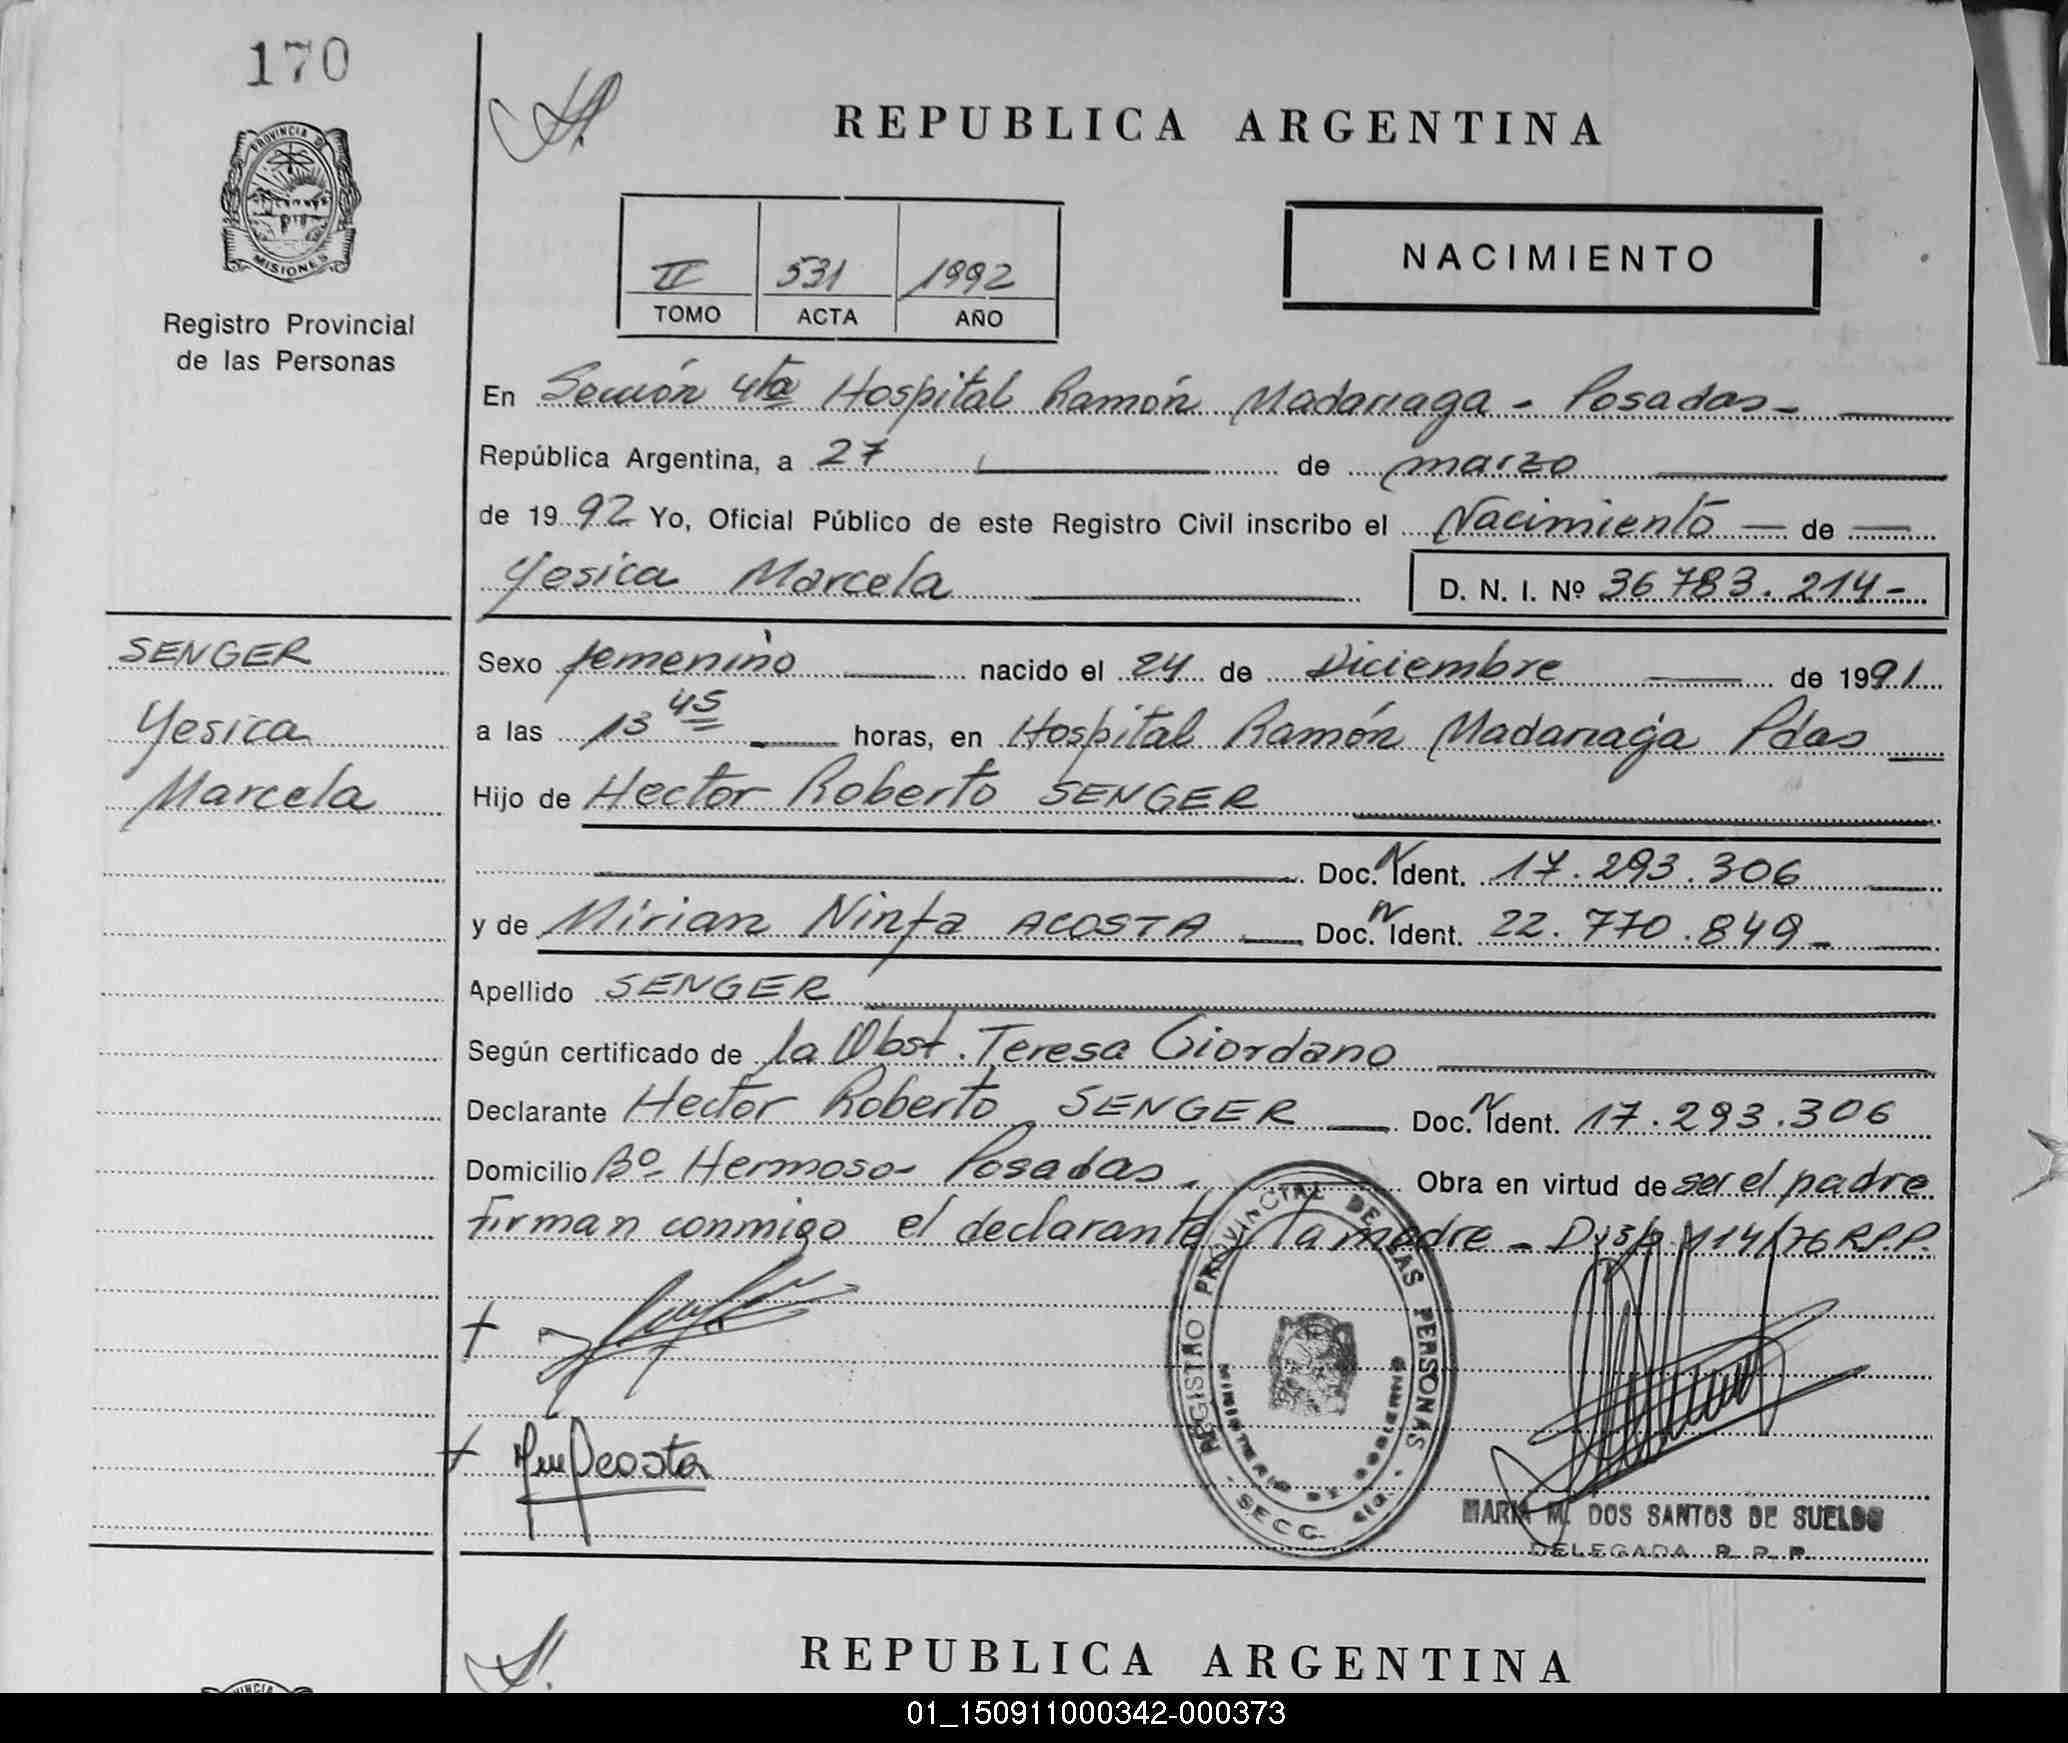 170
PROVINCIA DE
MISIONES
Registro Provincial
de las Personas
REPUBLICA ARGENTINA
II 531 1992
TOMO ACTA AÑO
NACIMIENTO
En Sección 4ta Hospital Ramón Madariaga - Posadas -
República Argentina, a 27 de marzo
de 1992 Yo, Oficial Público de este Registro Civil inscribo el Nacimiento de
Yesica Marcela D. N. I. Nº 36 783. 214 -
SENGER
Yesica
Marcela
Sexo femenino nacido el 24 de Diciembre de 1991
a las 13 45 horas, en Hospital Ramón Madariaga Pdas
Hijo de Hector Roberto SENGER
Doc. N Ident. 17.293.306
y de Mirian Ninfa ACOSTA Doc. N Ident. 22.770.849 -
Apellido SENGER
Según certificado de la Obst. Teresa Giordano
Declarante Hector Roberto SENGER Doc. N Ident. 17.293.306
Domicilio Bº Hermoso - Posadas - Obra en virtud de ser el padre
Firman conmigo el declarante y la madre - Disp 114/76 R.P.P.
REGISTRO PROVINCIAL DE LAS PERSONAS
MINISTERIO DE GOBIERNO
SECC. 4ta.
Acosta
MARIA M. DOS SANTOS DE SUELDO
DELEGADA R. P. P.
REPUBLICA ARGENTINA
01_150911000342-000373